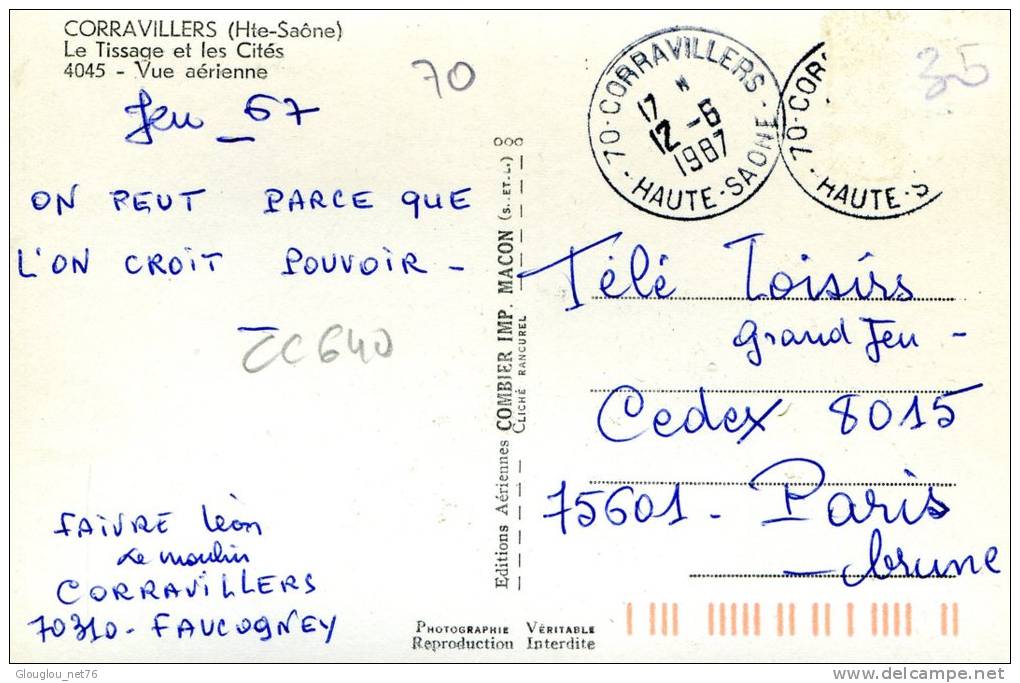 CORRAVILLERS (Hte-Saône)
Le Tissage et les Cités
4045 - Vue aérienne
70
Jeu _ 67
ON PEUT PARCE QUE
L'ON CROIT POUVOIR -
CC640
FAIVRE Léon
Le moulin
CORRAVILLERS
70310 - FAUCOGNEY
Editions Aériennes COMBIER IMP. MACON (S.-ET-L.)
CLICHÉ RANCUREL
PHOTOGRAPHIE VÉRITABLE
Reproduction Interdite
70-CORRAVILLERS
17 *
12-6
1987
HAUTE-SAONE
70-COR
HAUTE-S
35
Télé Loisirs
grand Jeu -
Cedex 8015
75601 - Paris
- brune
Glouglou_net76
delcampe.net